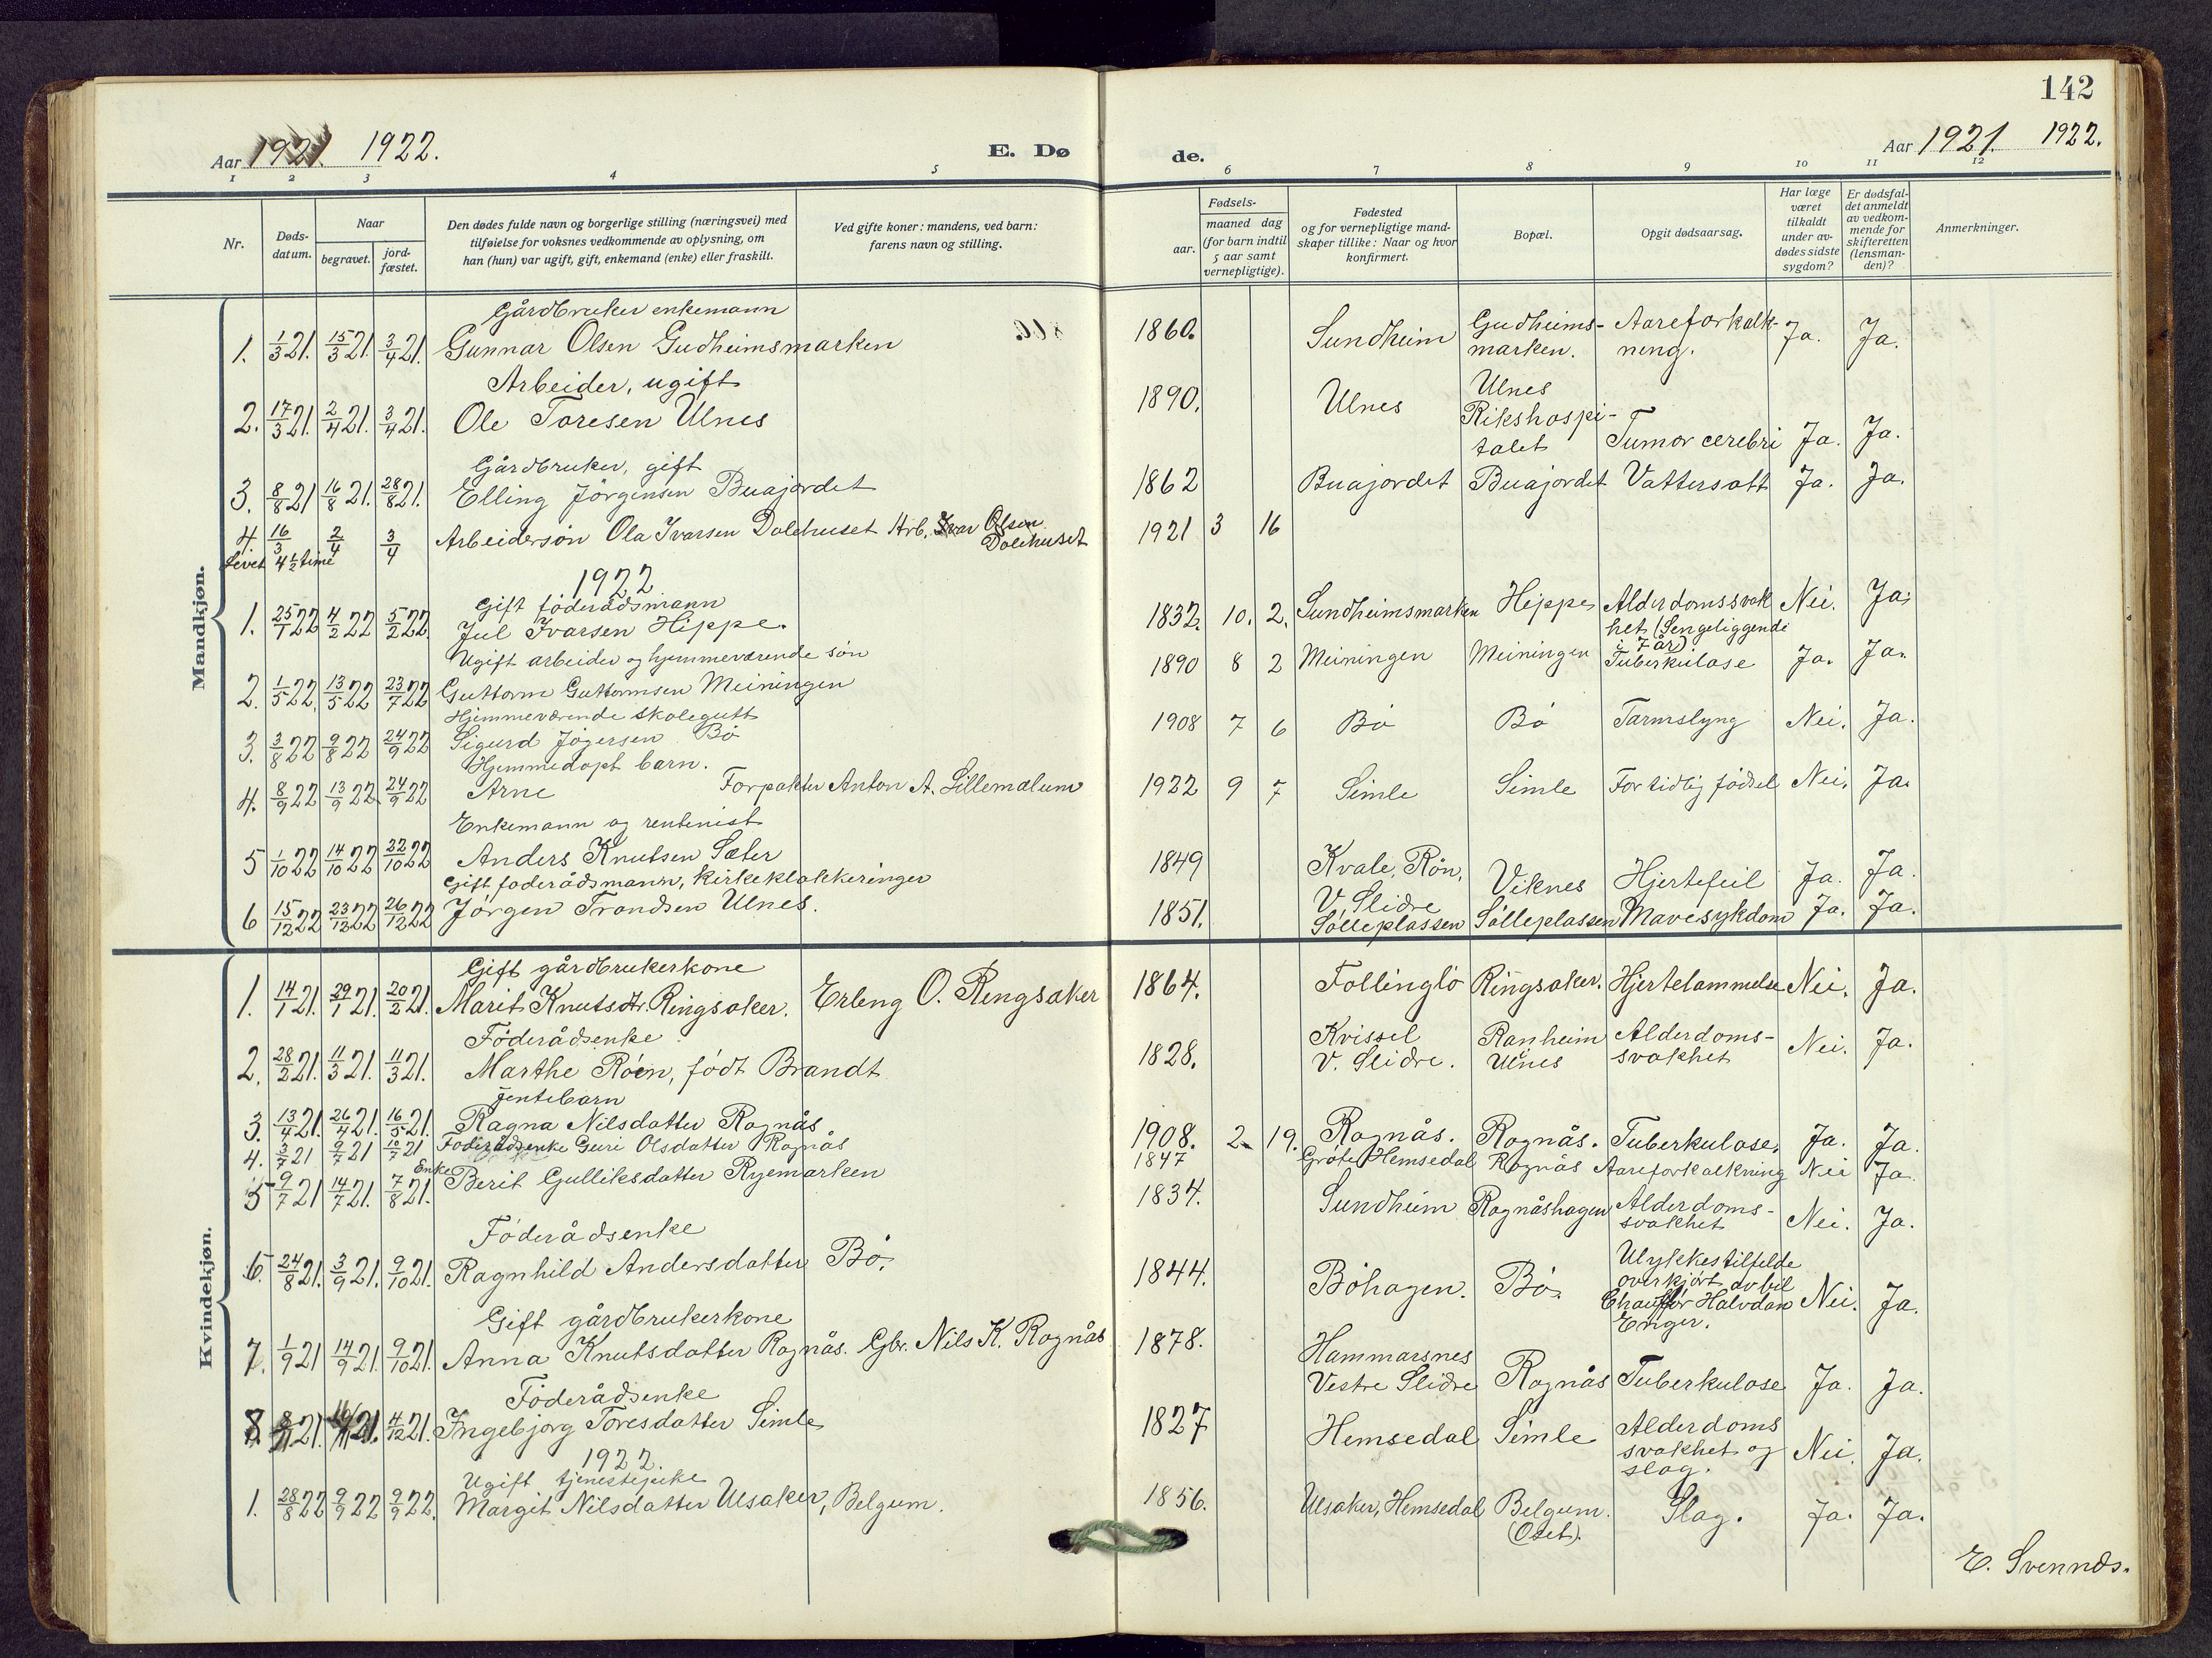 142
Aar 1921. 1922.
E. Dø
de.
Aar 1921. 1922.
1 2 3 4 5 6 7 8 9 10 11 12
Nr.
Døds-datum.
Naar
begravet.
jord-fæstet.
Den dødes fulde navn og borgerlige stilling (næringsvei) med
tilføielse for voksnes vedkommende av oplysning, om
han (hun) var ugift, gift, enkemand (enke) eller fraskilt.
Ved gifte koner: mandens, ved barn:
farens navn og stilling.
Fødsels-
aar.
maaned dag
(for barn indtil
5 aar samt
vernepligtige).
Fødested
og for vernepligtige mand-
skaper tillike: Naar og hvor
konfirmert.
Bopæl.
Opgit dødsaarsag.
Har læge
været
tilkaldt
under av-
dødes sidste
sygdom?
Er dødsfal-
det anmeldt
av vedkom-
mende for
skifteretten
(lensman-
den)?
Anmerkninger.
Mandkjøn.
Gårdbruker enkemann
1. 1/3 21. 15/3 21. 3/4 21. Gunnar Olsen Gudheimsmarken 1860. Sundheim Gudheims-marken. Aareforkalk-ning. Ja. Ja.
Arbeider, ugift
2. 17/3 21. 2/4 21. 3/4 21. Ole Toresen Ulnes 1890. Ulnes Ulnes Rikshospi-talet Tumor cerebri Ja. Ja.
Gårdbruker, gift
3. 8/8 21 16/8 21. 28/8 21. Elling Jörgensen Buajordet 1862 Buajordet Buajordet Vattersott Ja. Ja.
4. 16/3 2/4 3/4 Arbeidersön Ola Ivarsen Dalehuset Arb. Ivar Olsen Dalehuset 1921 3 16
Levet 4 1/2 time
1922
Gift föderådsmann
1. 25/1 22 4/2 22 5/2 22 Jul Ivarsen Hippe. 1832. 10. 2. Sundheimsmarken Hippe Alderdomssvak-het (Sengeliggende i 7 år) Nei. Ja.
Ugift arbeider og hjemmeværende sön
2. 1/5 22. 13/5 22 23/7 22 Guttorm Guttormsen Meiningen 1890 8 2 Meiningen Meiningen Tuberkulose Ja. Ja.
Hjemmeværende skolegutt
3. 3/8 22 9/8 22 24/9 22 Sigurd Jögersen Bö 1908 7 6 Bö Bö Tarmslyng Nei. Ja.
Hjemmedöpt barn.
4. 8/9 22 13/9 22 24/9 22 Arne Forpakter Anton A. Lillemælum 1922 9 7 Simle Simle For tidlig födsel Nei. Ja.
Enkemann og rentenist
5 1/10 22 14/10 22 22/10 22 Anders Knutsen Sæter 1849 Kvale, Rön, V. Slidre Viknes Hjertefeil Ja. Ja.
Gift föderådsmann, kirkeklokkeringer
6 15/12 22 23/12 22 26/12 22 Jörgen Trondsen Ulnes. 1851. Sölleplassen Sölleplassen Mavesykdom Ja. Ja.
Kvindekjøn.
Gift gårdbrukerkone
1. 14/1 21. 29/1 21. 20/2 21. Marit Knutsdtr. Ringsaker. Erling O. Ringsaker 1864. Follinglö Ringsaker. Hjertelammelse Nei. Ja.
Föderådsenke
2. 28/2 21. 11/3 21. 11/3 21. Marthe Röen, födt Brandt 1828. Kvissel V. Slidre. Ranheim Ulnes Alderdoms-svakhet Nei. Ja.
Jentebarn
3. 13/4 21. 26/4 21. 16/5 21. Ragna Nilsdatter Rognås 1908. 2. 19. Rognås. Rognås. Tuberkulose. Ja. Ja.
4. 3/7 21 9/7 21 10/7 21 Föderådsenke Guri Olsdatter Rognås 1847 Gröte, Hemsedal Rognås Aareforkalkning Nei Ja.
5 9/7 21 14/7 21. 7/8 21. Enke Berit Gulliksdatter Ryemarken 1834. Sundheim Rognåshagen Alderdoms-svakhet Nei. Ja.
Föderådsenke
6. 24/8 21. 3/9 21. 9/10 21. Ragnhild Andersdatter Bö. 1844. Böhagen. Bö. Ulykkestilfelde overkjört av bil Chauffør Halvdan Enger. Nei. Ja.
Gift gårdbrukerkone
7. 1/9 21 14/9 21. 9/10 21. Anna Knutsdatter Rognås. Gbr. Nils K. Rognås 1878. Hammarsnes Vestre Slidre Rognås Tuberkulose Ja. Ja.
Föderådsenke
8. 8/11 21. 16/11 21. 4/12 21. Ingebjørg Toresdatter Simle 1827 Hemsedal Simle Alderdoms svakhet og slag. Nei. Ja.
1922.
Ugift tjenestepike
1. 28/8 22 9/9 22 9/9 22. Margit Nilsdatter Ulsaker, Belgum. 1856. Ulsaker, Hemsedal Belgum. (Oset). Slag. Ja. Ja.
E. Svennds.